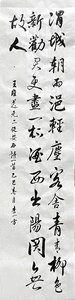 渭城朝雨浥輕塵客舍青青柳色
新勸君更盡一杯酒西出陽關無
故人
王維送元二使安西詩